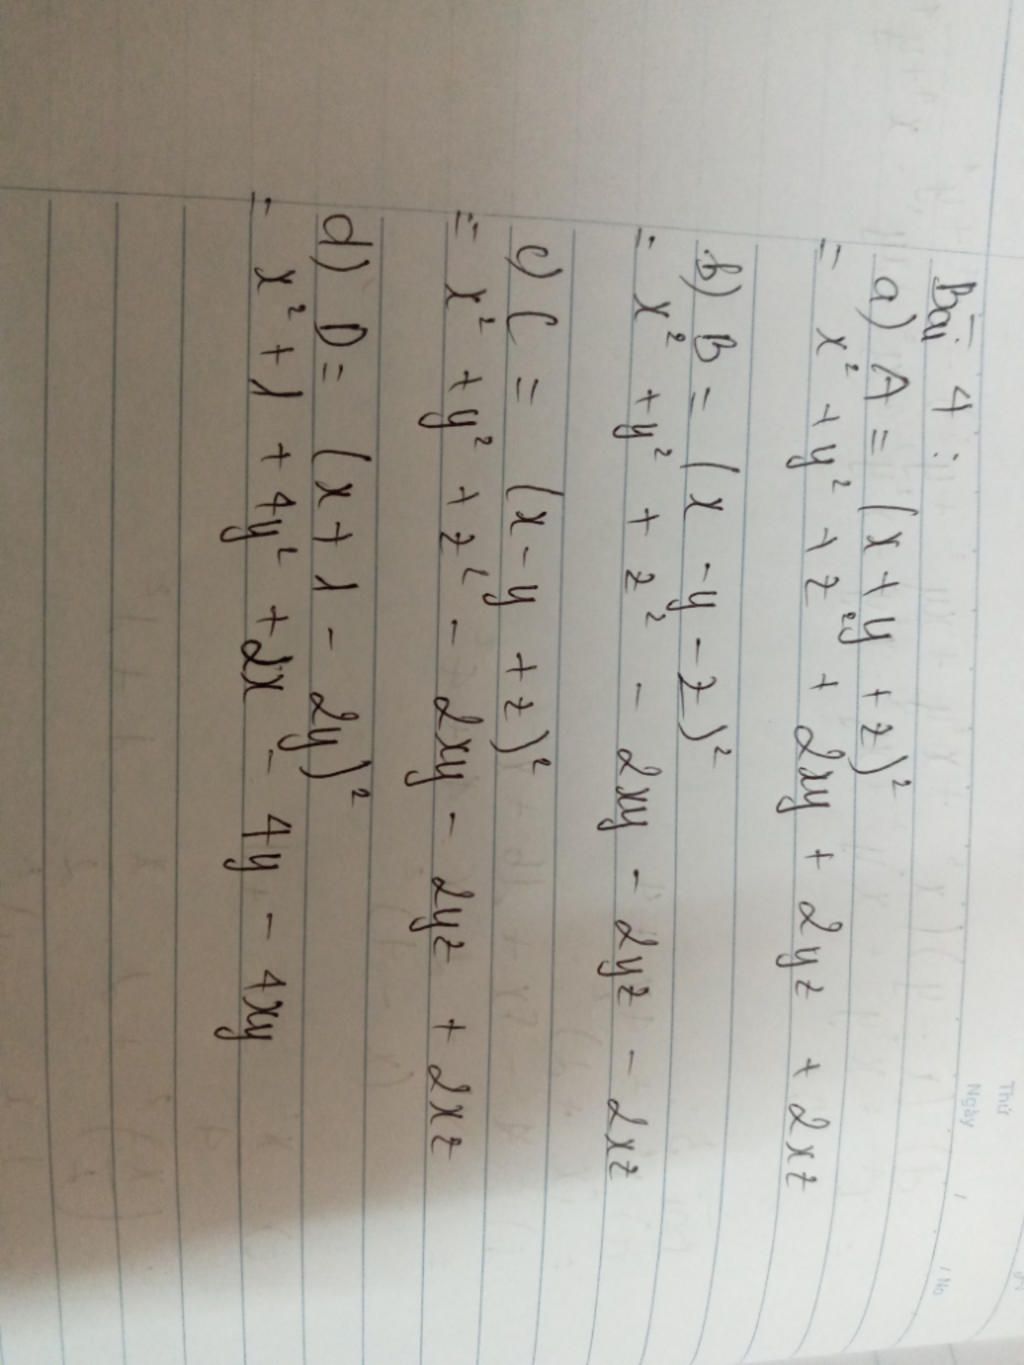 Thứ
Ngày / / No
Bài 4 :
a) A = (x + y + z)²
= x² + y² + z² + 2xy + 2yz + 2xz
b) B = (x - y - z)²
= x² + y² + z² - 2xy - 2yz - 2xz
c) C = (x - y + z)²
= x² + y² + z² - 2xy - 2yz + 2xz
d) D = (x + 1 - 2y)²
= x² + 1 + 4y² + 2x - 4y - 4xy